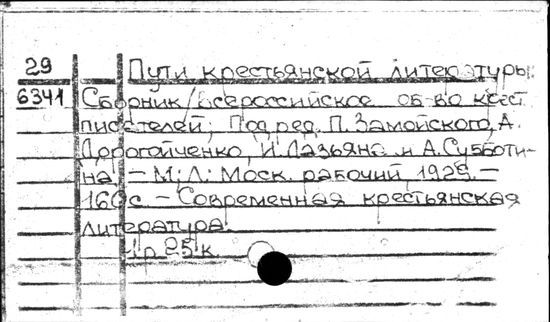 29 Пути крестьянской литературы:
6341 Сборник/Всероссийское об-во крест.
писателей; Под ред. П. Замойского, А.
Дорогойченко, И. Лазьяна и А. Субботи-
на. – М.; Л.: Моск. рабочий, 1929. –
160с. – Современная крестьянская
литература.
1р 25к